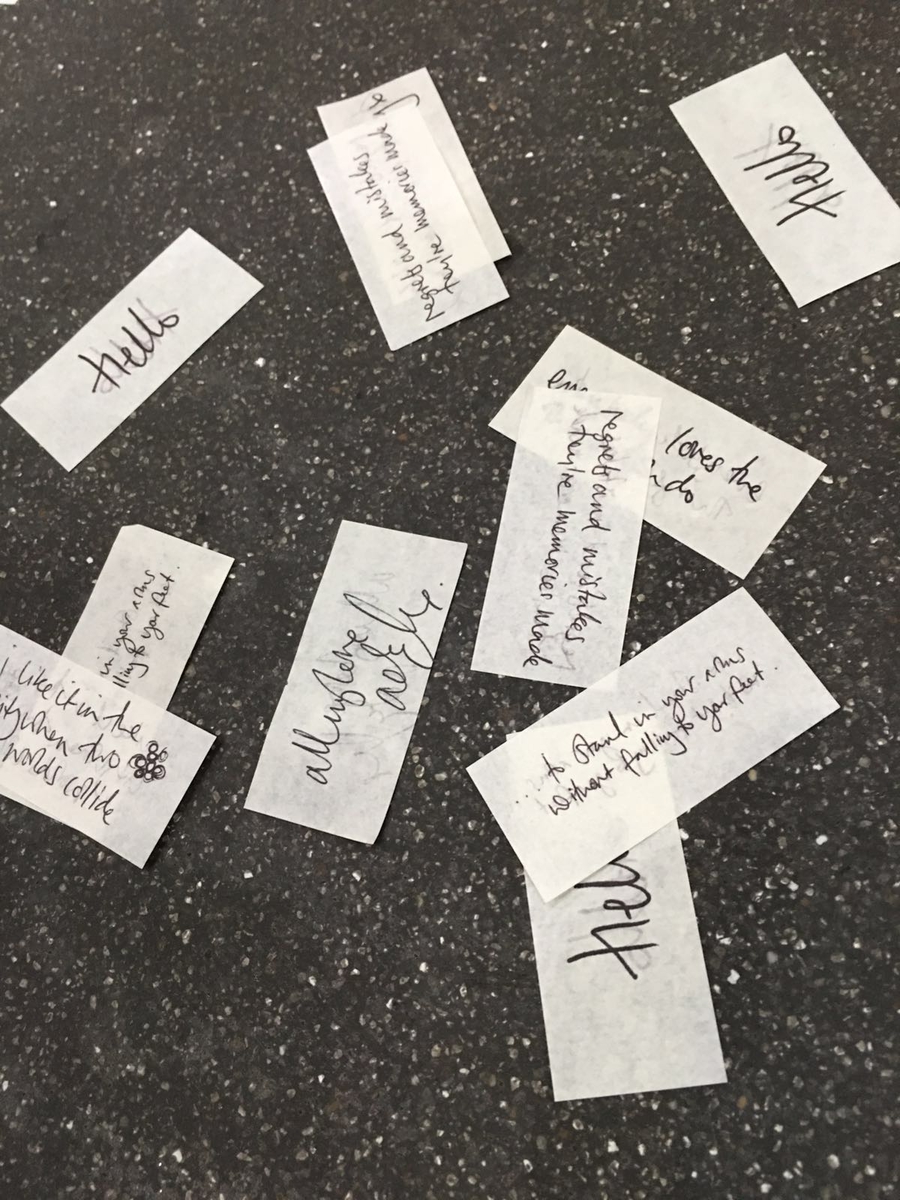 regrets and mistakes
they're memories made
Hello
Hello
loves the
do
regrets and mistakes
they're memories made
in your arms
to your feet.
i like it in the
when two
words collide
all my love
adele.
... to stand in your arms
without falling to your feet.
Hell